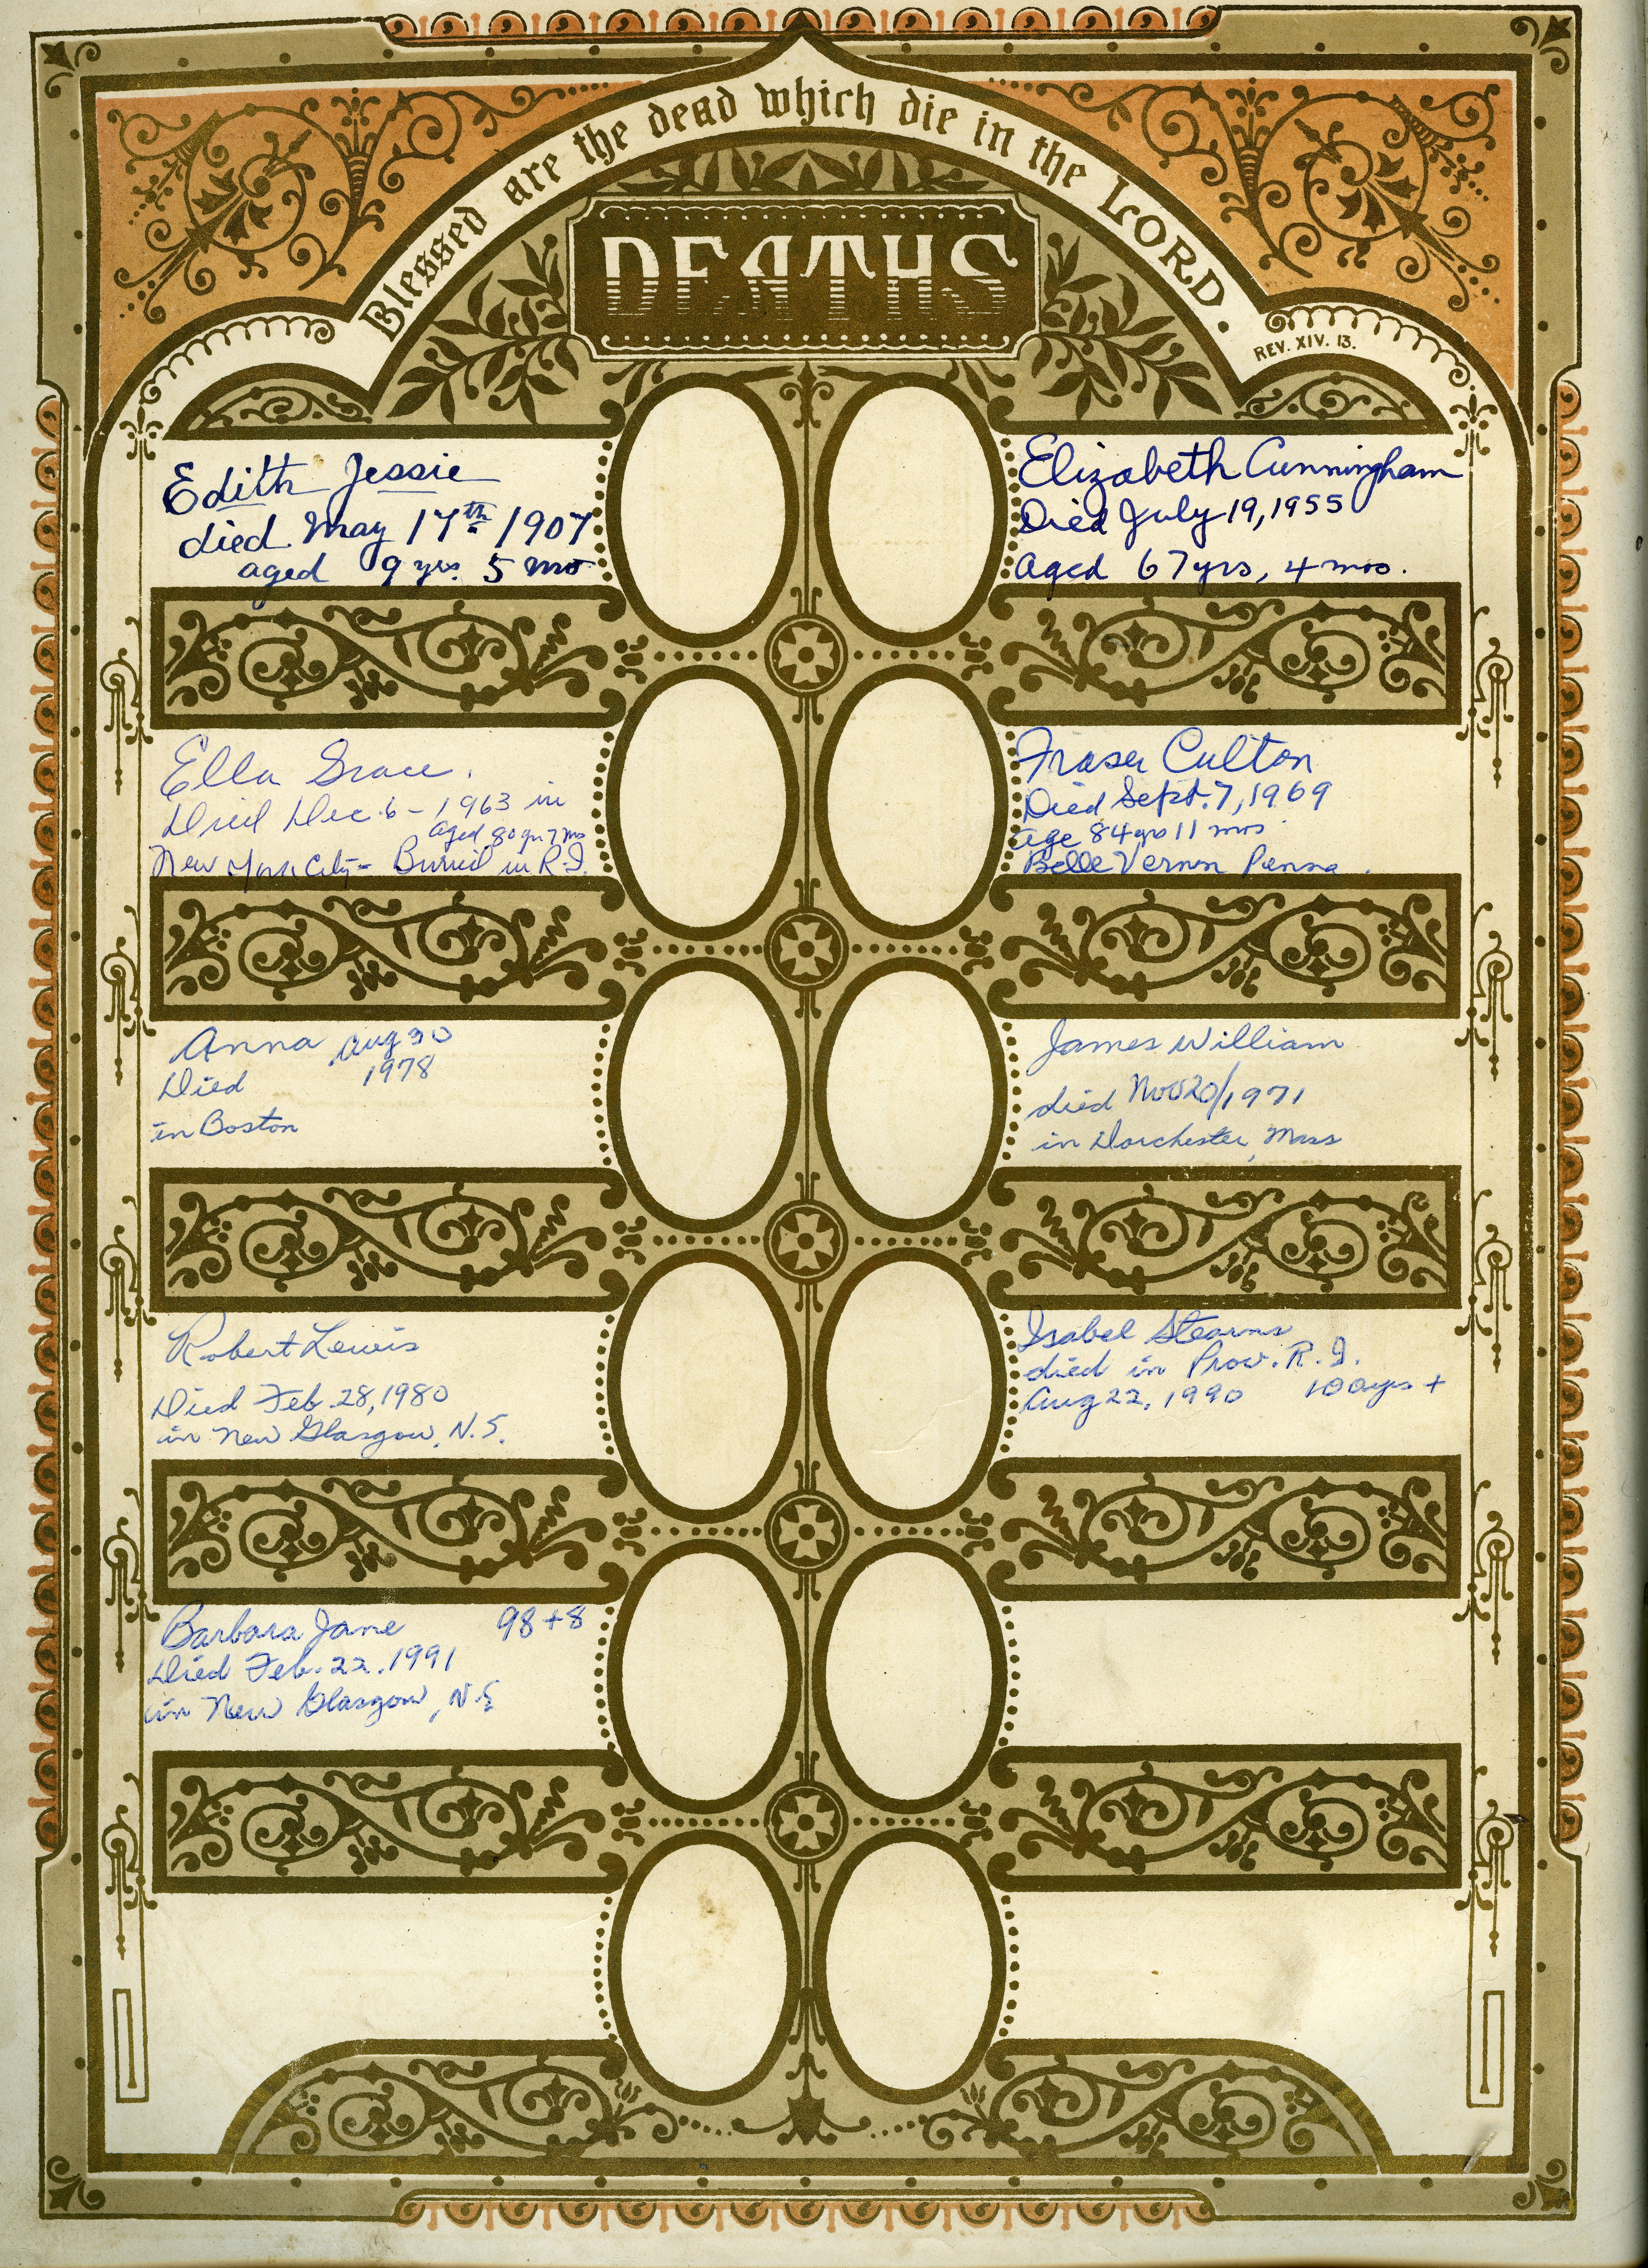 Blessed are the dead which die in the LORD.
REV. XIV. 13.
DEATHS
Edith Jessie
died May 17th 1907
aged 9 yrs. 5 mo
Elizabeth Cunningham
Died July 19, 1955
Aged 67 yrs, 4 mos.
Ella Grace.
Died Dec. 6 - 1963 in
aged 80 yrs 7 mos
New York City - Buried in R.I.
Fraser Culton
Died Sept. 7, 1969
age 84 yrs 11 mos.
Belle Vernon Penna.
Anna Aug 30
Died 1978
in Boston
James William
died Nov 20/1971
in Dorchester, Mass
Robert Lewis
Died Feb. 28, 1980
in New Glasgow, N.S.
Isabel Stearns
died in Prov. R.I.
Aug 22, 1990 100 yrs +
Barbara Jane 98 + 8
Died Feb. 22. 1991
in New Glasgow, N.S